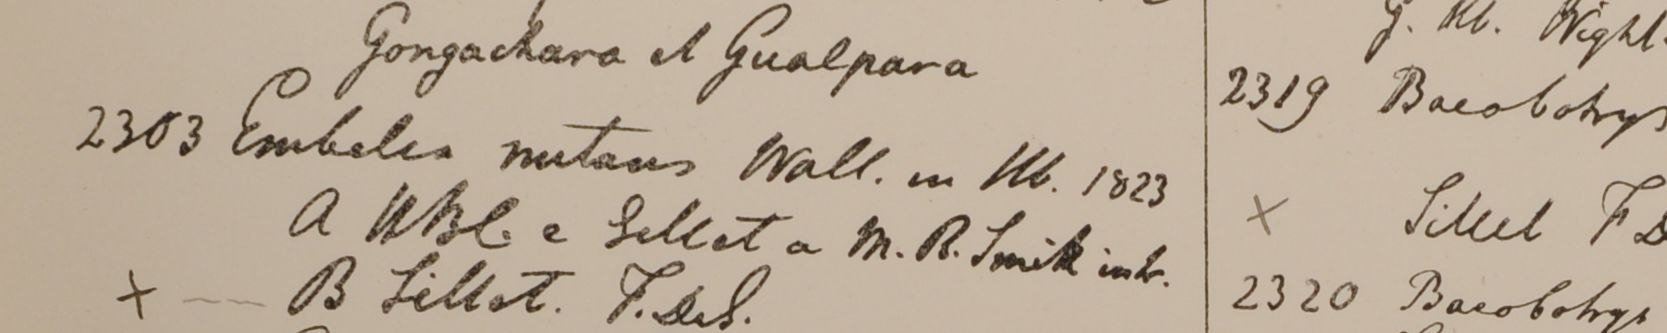 Gongachara et Gualpara
2303 Embelia nutans Wall. in Hb. 1823
A HBC. e Sillet a M. R. Smith intr.
+ B Sillet. F. De S.
G. Hb. Wight.
2319 Baeobotrys
× Sillet F D
2320 Baeobotrys